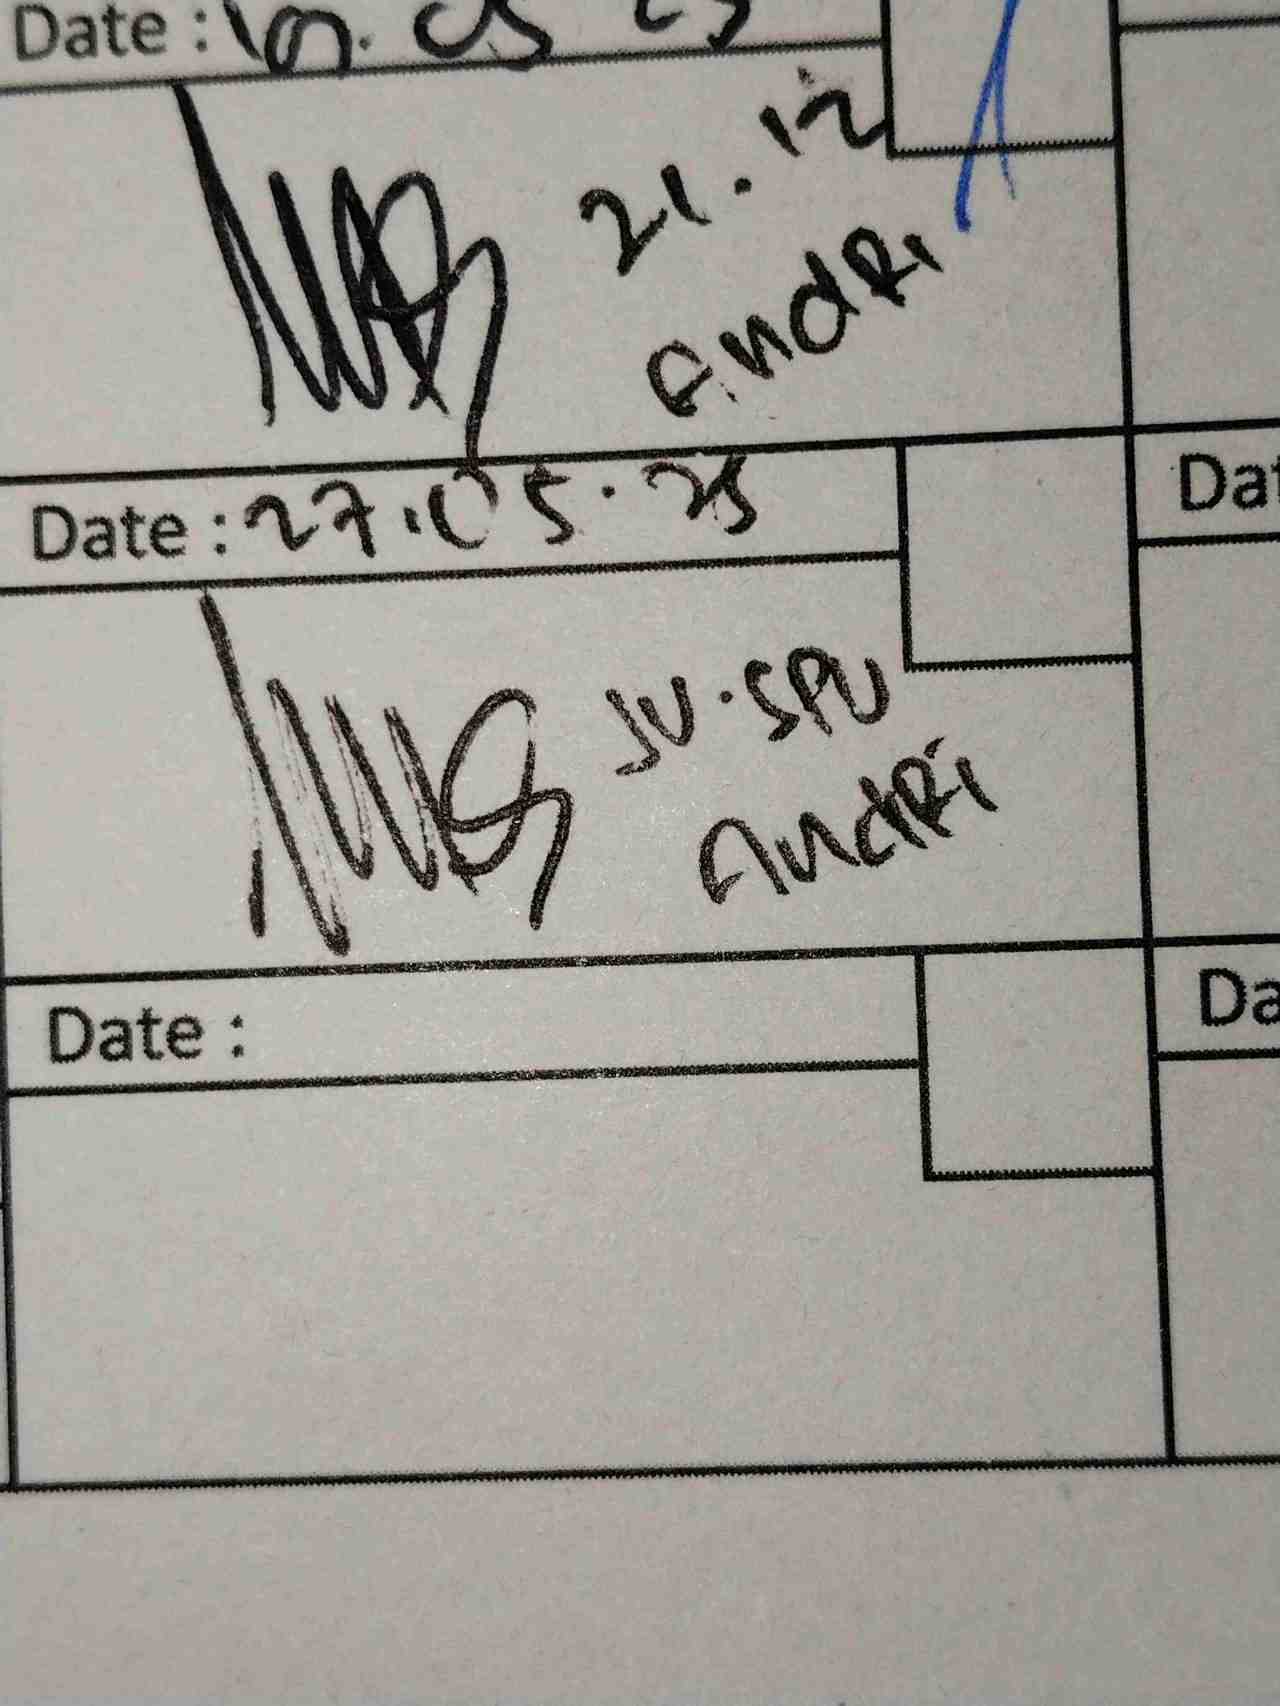 Date :
21.12
AndRi
Date : 27.05.25
Dat
JU.SPU
AndRi
Date :
Da